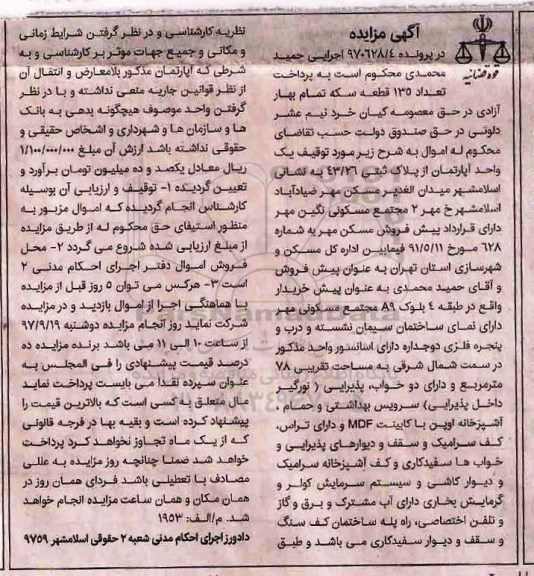 آگهی مزایده
قوه قضائیه
در پرونده ۹۷۰۶۲۸/٤ اجرایی حمید
محمدی محکوم است به پرداخت
تعداد ۱۳۵ قطعه سکه تمام بهار
آزادی در حق معصومه کیان خرد نیم عشر
دولتی در حق صندوق دولت حسب تقاضای
محکوم له اموال به شرح زیر مورد توقیف یک
واحد آپارتمان از پلاک ثبتی ٤۳/۲٦ به نشانی
اسلامشهر میدان الغدیر مسکن مهر ضیادآباد
اسلامشهر خ مهر ۲ مجتمع مسکونی نگین مهر
دارای قرارداد پیش فروش مسکن مهر به شماره
٦۲۸ مورخ ۹۱/۵/۱۱ فیمابین اداره کل مسکن و
شهرسازی استان تهران به عنوان پیش فروش
و آقای حمید محمدی به عنوان پیش خریدار
واقع در طبقه ٤ بلوک A۹ مجتمع مسکونی مهر
دارای نمای ساختمان سیمان نشسته و درب و
پنجره فلزی دوجداره دارای آسانسور واحد مذکور
در سمت شمال شرقی به مساحت تقریبی ۷۸
مترمربع و دارای دو خواب، پذیرایی ( نورگیر
داخل پذیرایی) سرویس بهداشتی و حمام ،
آشپزخانه اوپن با کابینت MDF و دارای تراس،
کف سرامیک و سقف و دیوارهای پذیرایی و
خواب ها سفیدکاری و کف آشپزخانه سرامیک
و دیوار کاشی و سیستم سرمایش کولر و
گرمایش بخاری دارای آب مشترک و برق و گاز
و تلفن اختصاصی، راه پله ساختمان کف سنگ
و سقف و دیوار سفیدکاری می باشد و طبق
نظریه کارشناسی و در نظر گرفتن شرایط زمانی
و مکانی و جمیع جهات موثر بر کارشناسی و به
شرطی که آپارتمان مذکور بلامعارض و انتقال آن
از نظر قوانین جاریه منعی نداشته و با در نظر
گرفتن واحد موصوف هیچگونه بدهی به بانک
ها و سازمان ها و شهرداری و اشخاص حقیقی و
حقوقی نداشته باشد ارزش آن مبلغ ۱/۱۰۰/۰۰۰/۰۰۰
ریال معادل یکصد و ده میلیون تومان برآورد و
تعیین گردیده ۱- توقیف و ارزیابی آن بوسیله
کارشناس انجام گردیده که اموال مزبور به
منظور استیفای حق محکوم له از طریق مزایده
از مبلغ ارزیابی شده شروع می گردد ۲- محل
فروش اموال دفتر اجرای احکام مدنی ۲
است ۳- هرکس می توان ۵ روز قبل از مزایده
با هماهنگی اجرا از اموال بازدید و در مزایده
شرکت نماید روز انجام مزایده دوشنبه ۹۷/۹/۱۹
از ساعت ۱۰ الی ۱۱ می باشد برنده مزایده ده
درصد قیمت پیشنهادی را فی المجلس به
عنوان سپرده نقدا می بایست پرداخت نماید
مال متعلق به کسی است که بالاترین قیمت را
پیشنهاد کرده است و بقیه بها در فرجه قانونی
که از یک ماه تجاوز نخواهد کرد پرداخت
خواهد شد ضمنا چنانچه روز مزایده به عللی
مصادف با تعطیلی باشد فردای همان روز در
همان مکان و همان ساعت مزایده انجام خواهد
شد. م/الف: ۱۹۵۳
دادورز اجرای احکام مدنی شعبه ۲ حقوقی اسلامشهر ۹۷۵۹